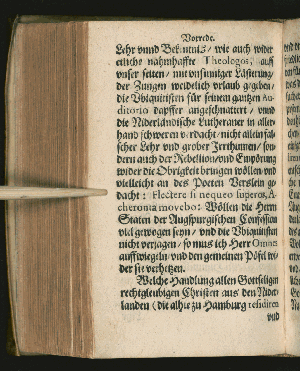 Vorrede.
Lehr vnnd Bekäntnis / wie auch wider
etliche nahmhaffte Theologos, auff
vnser seiten / mit vnsinniger Lästerung
der Zungen weidelich vrlaub gegeben /
die Vbiquitisten für seinem gantzen Au-
ditorio dapffer angeschnattert / vnnd
die Niderländische Lutheraner in aller-
hand schweren verdacht / nicht allein fal-
scher Lehr vnd grober Irrthumen / son-
dern auch der Rebellion / vnd Empörung
wider die Obrigkeit bringen wöllen / vnd
vielleicht an des Poeten Verslein ge-
dacht: Flectere si nequeo superos, A-
cheronta movebo: Wöllen die Herrn
Staten der Augspurgischen Confession
viel gewogen seyn / vnd die Vbiquitisten
nicht verjagen / so mus ich Herr Omnes
auffwiegeln / vnd den gemeinen Pöfel wi-
der sie verhetzen.
Welche Handlung allen Gottseligen
rechtgleubigen Christen aus den Nider-
landen (die alhie zu Hamburg residiren
vnd